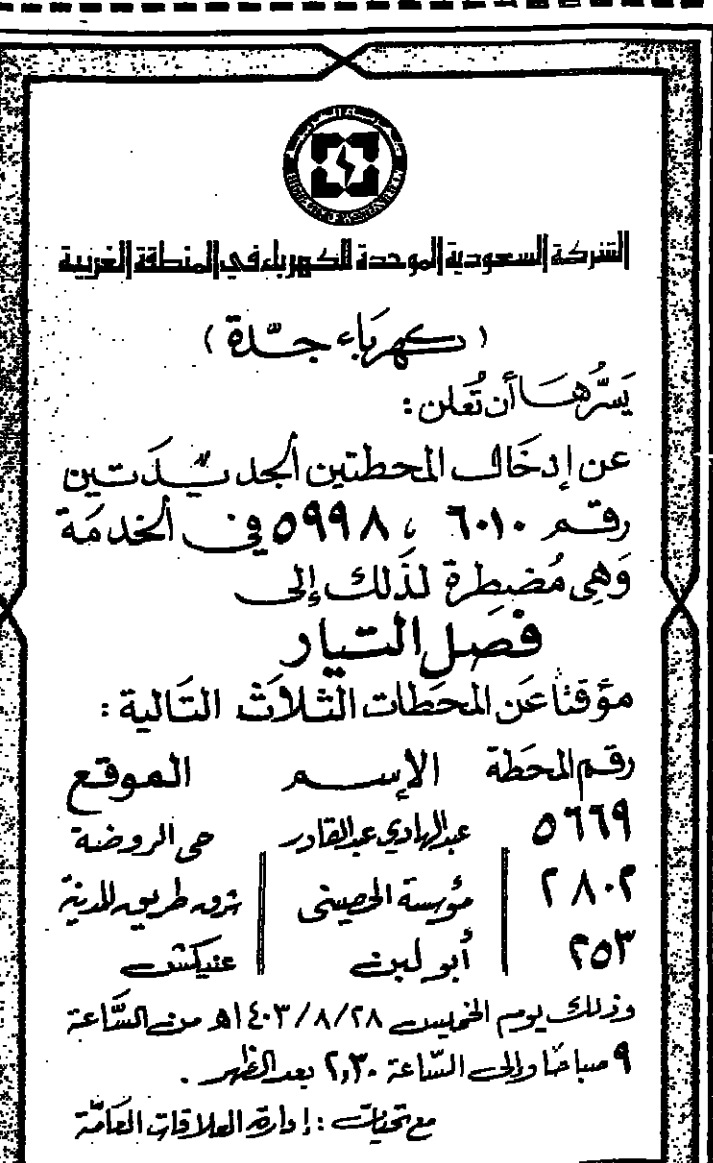 الشركة السعودية الموحدة للكهرباء في المنطقة الغربية
( كهرباء جدّة )
يَسُرُّهَا أن تُعلن :
عن إدخَال المحطتين الجديدَتين
رقم ٦٠١٠ ، ٥٩٩٨ في الخدمَة
وَهي مُضطرة لذَلك إلى
فصل التيار
مؤقتاً عَن المحَطات الثلاث التَالية :
رقم المحَطة الإسم الموقع
٥٦٦٩ عبدالهادي عبدالقادر حى الروضة
٢٨٠٢ مؤسسة الحصينى شرق طريق المدينة
٢٥٣ أبو لبن عنيكش
وذلك يوم الخميس ٢٨/٨/١٤٠٣هـ من السَّاعة
٩ صباحًا وإلى السَّاعة ٢,٣٠ بعد الظهر .
مع تحيات : إدارة العلاقات العَامّة